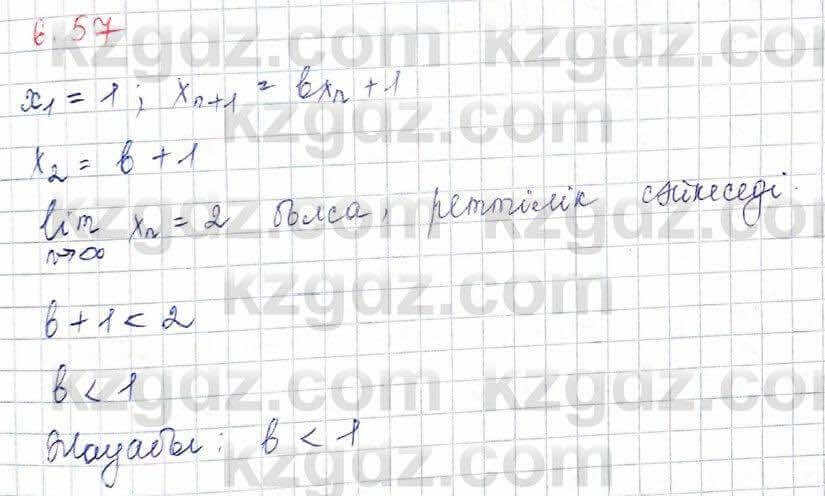 6.57
x₁ = 1; xₙ₊₁ = bxₙ + 1
x₂ = b + 1
lim xₙ = 2 болса, реттілік сәйкеседі.
n→∞
b + 1 < 2
b < 1
Жауабы: b < 1
kzgdz.com kzgdz.com
kzgdz.com
kzgdz.com kzgdz.com
kzgdz.com
kzgdz.com kzgdz.com
kzgdz.com